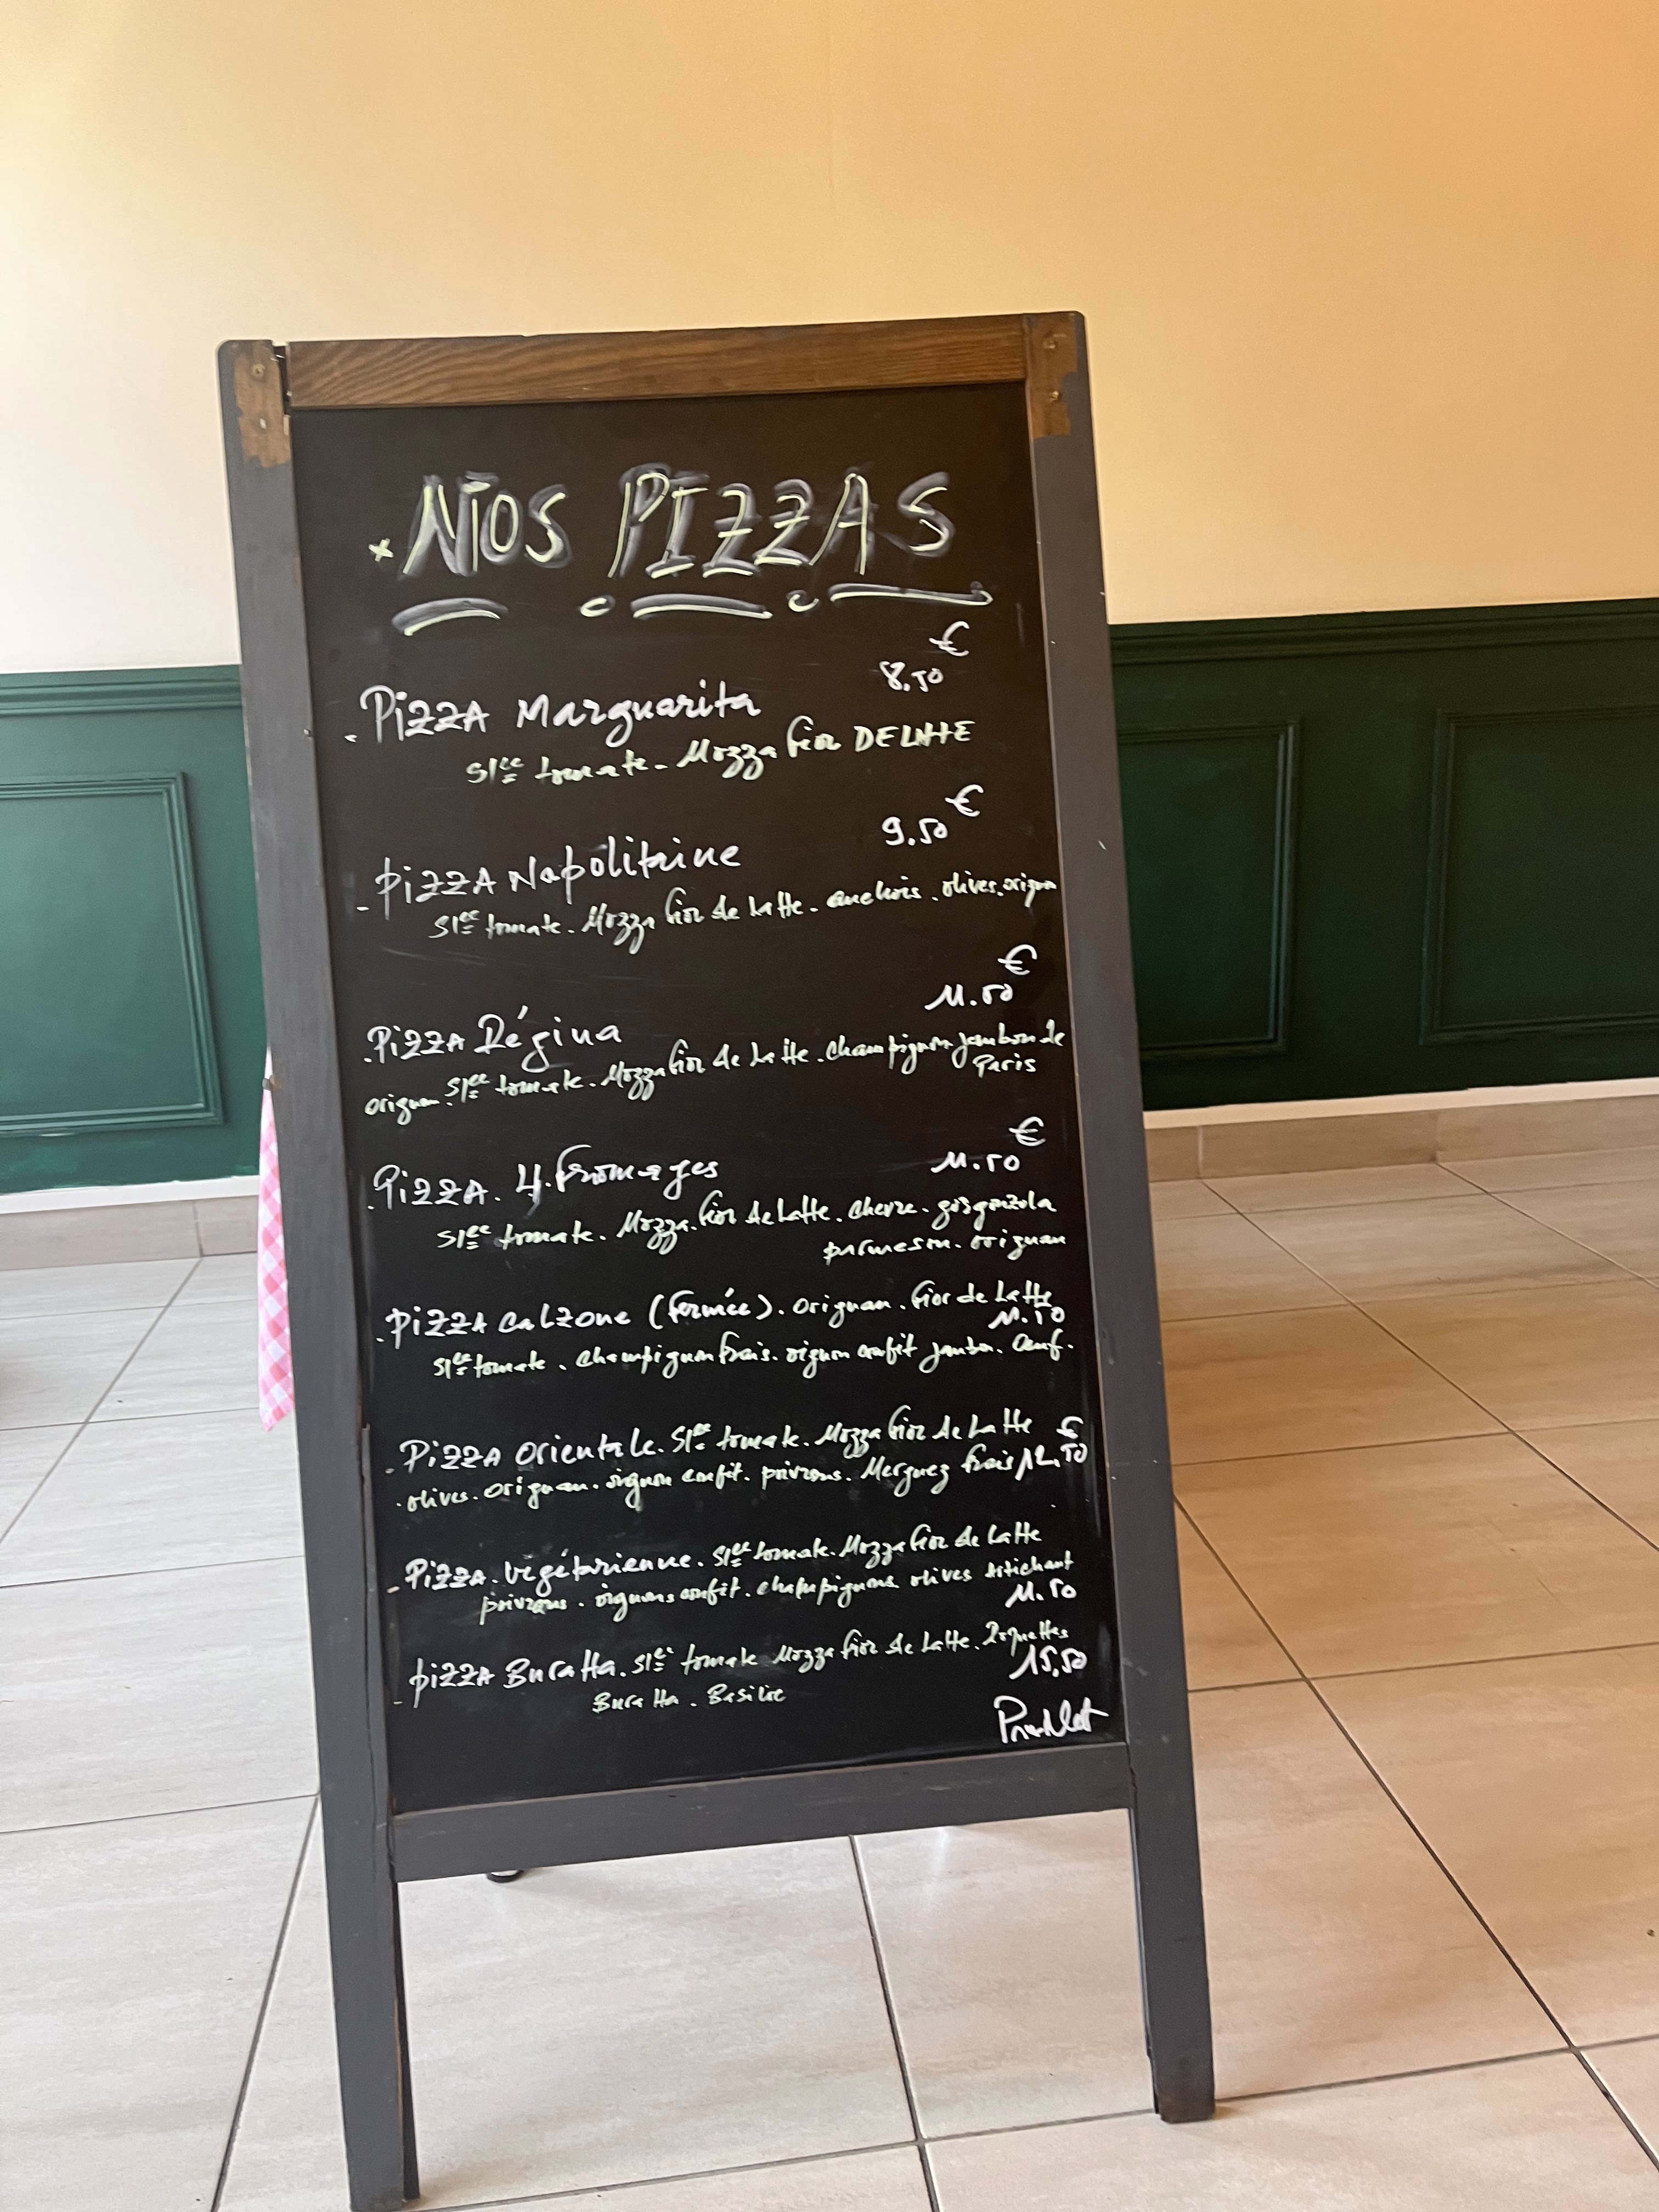 NOS PIZZAS
€
8.50
Pizza Marguarita
Slce tomate. Mozza fior DE LATTE
€
9.50
Pizza Napolitaine
Slce tomate. Mozza fior de Latte. anchois. olives. origan
€
11.50
Pizza Régina
origan. Slce tomate. Mozza fior de Latte. champignon jambon de
Paris
€
11.50
Pizza. 4. fromages
Slce tomate. Mozza. fior de Latte. chevre. gorgonzola
parmesan. origuan
Pizza calzone (fermée). origuan. fior de Latte
11.50
Slce tomate. champignon frais. oignon confit jambon. œuf.
Pizza orientale. Slce tomate. Mozza fior de Latte €
olives. origuan. oignon confit. poivrons. Merguez frais 12.50
Pizza. végétarienne. Slce tomate. Mozza fior de Latte
poivrons. oignons confit. champignons olives artichaut
11.50
Pizza Buratta. Slce tomate Mozza fior de Latte. Roquettes
15.50
Buratta. Basilic